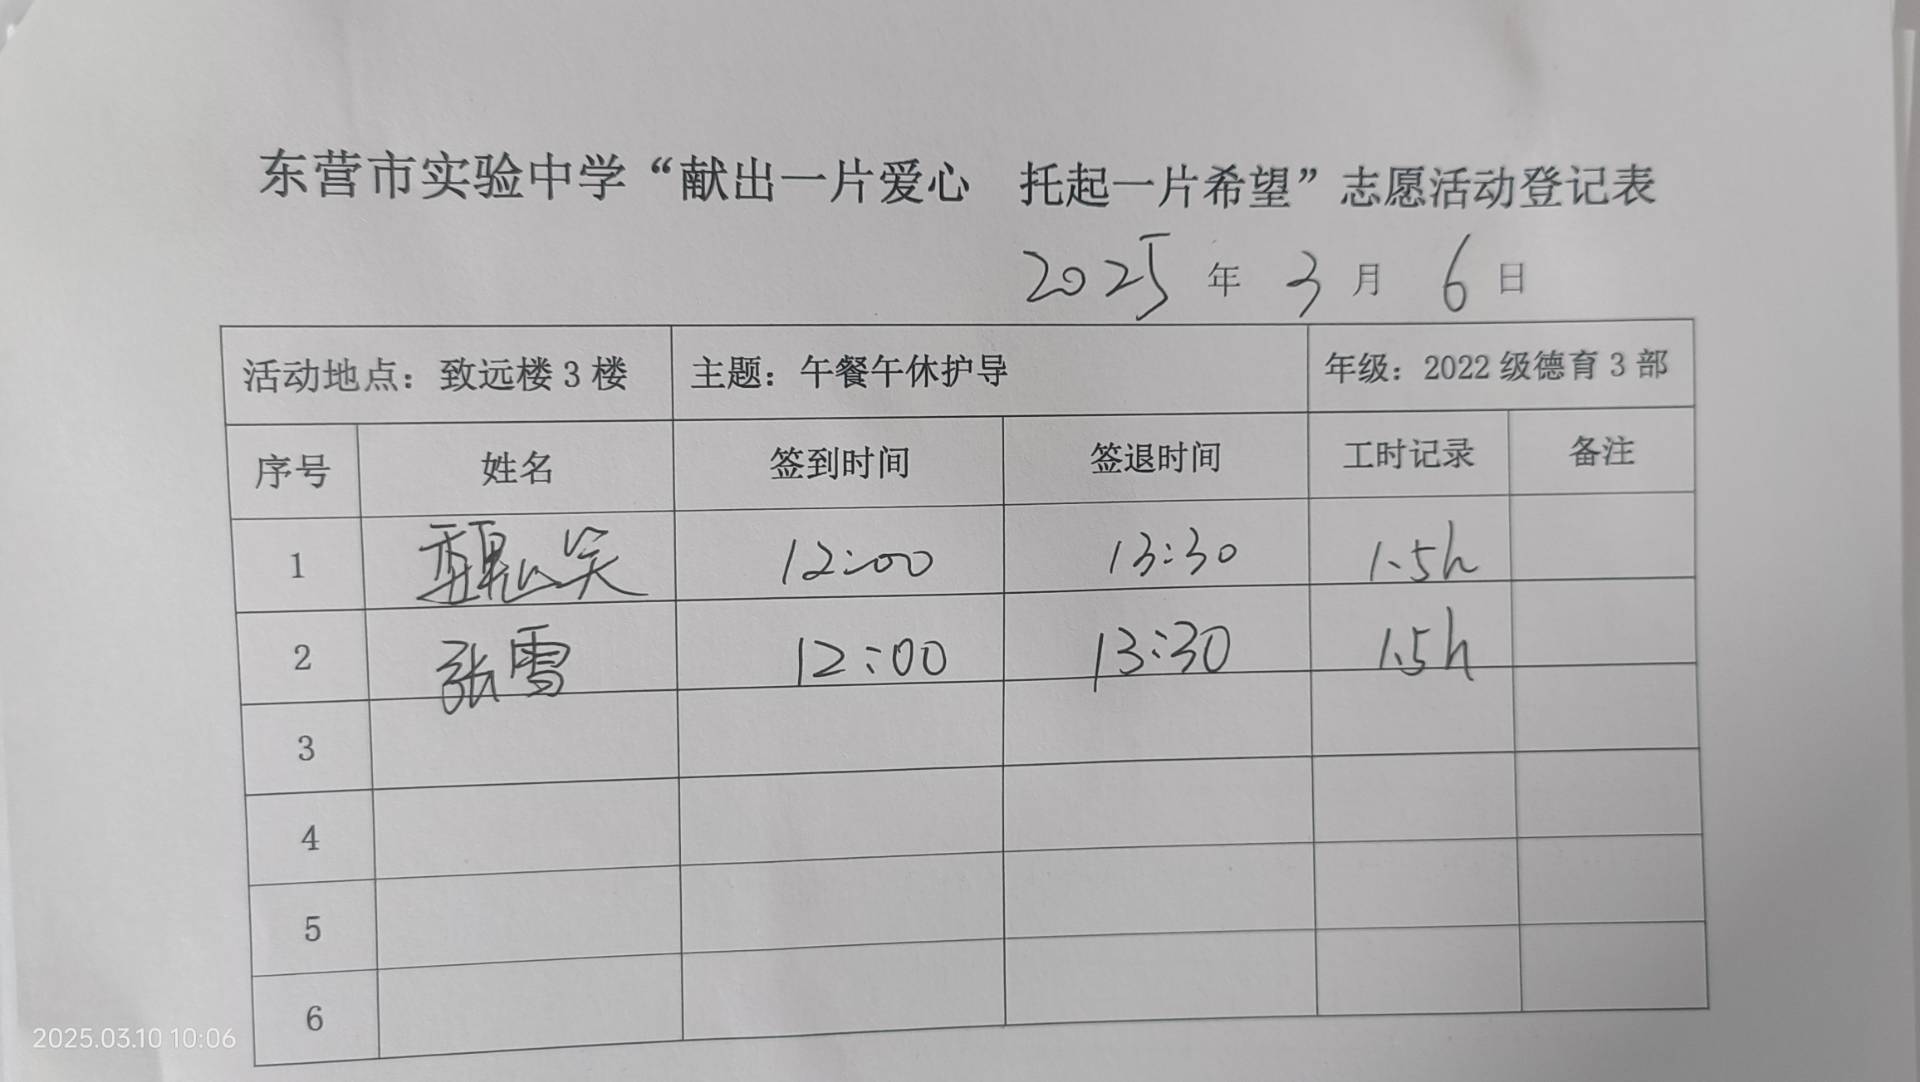 东营市实验中学“献出一片爱心 托起一片希望”志愿活动登记表
2025 年 3 月 6 日
活动地点：致远楼3楼 主题：午餐午休护导 年级：2022级德育3部
序号 姓名 签到时间 签退时间 工时记录 备注
1 魏笑 12:00 13:30 1.5h
2 张雪 12:00 13:30 1.5h
3
4
5
6
2025.03.10 10:06